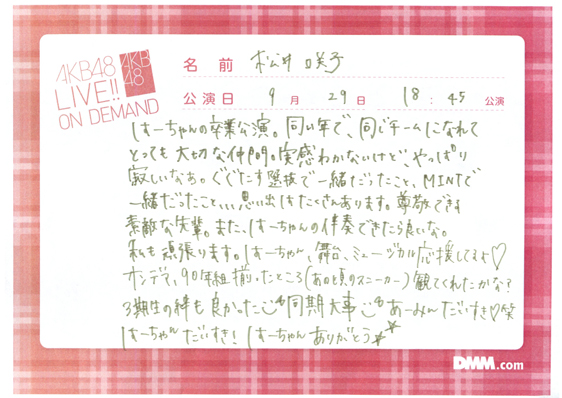 AKB48
LIVE!!
ON DEMAND
AKB
48
名前 松井咲子
公演日 9月 29日 18:45 公演
はーちゃんの卒業公演。同い年で、同じチームになれて
とっても大切な仲間。実感わかないけど、やっぱり
寂しいなぁ。ぐぐたす選抜で一緒だったこと、MINTで
一緒だったこと、、、思い出はたくさんあります。尊敬できる
素敵な先輩。また、はーちゃんの伴奏できたら良いな。
私も頑張ります。はーちゃん、舞台、ミュージカル応援してるよ♡
オンデマ、90年組揃ったところ(あの頃のスニーカー)観てくれたかな?
3期生の絆も良かった 同期大事 あーみんだいすき♡笑
はーちゃんだいすき! はーちゃんありがとう
DMM.com